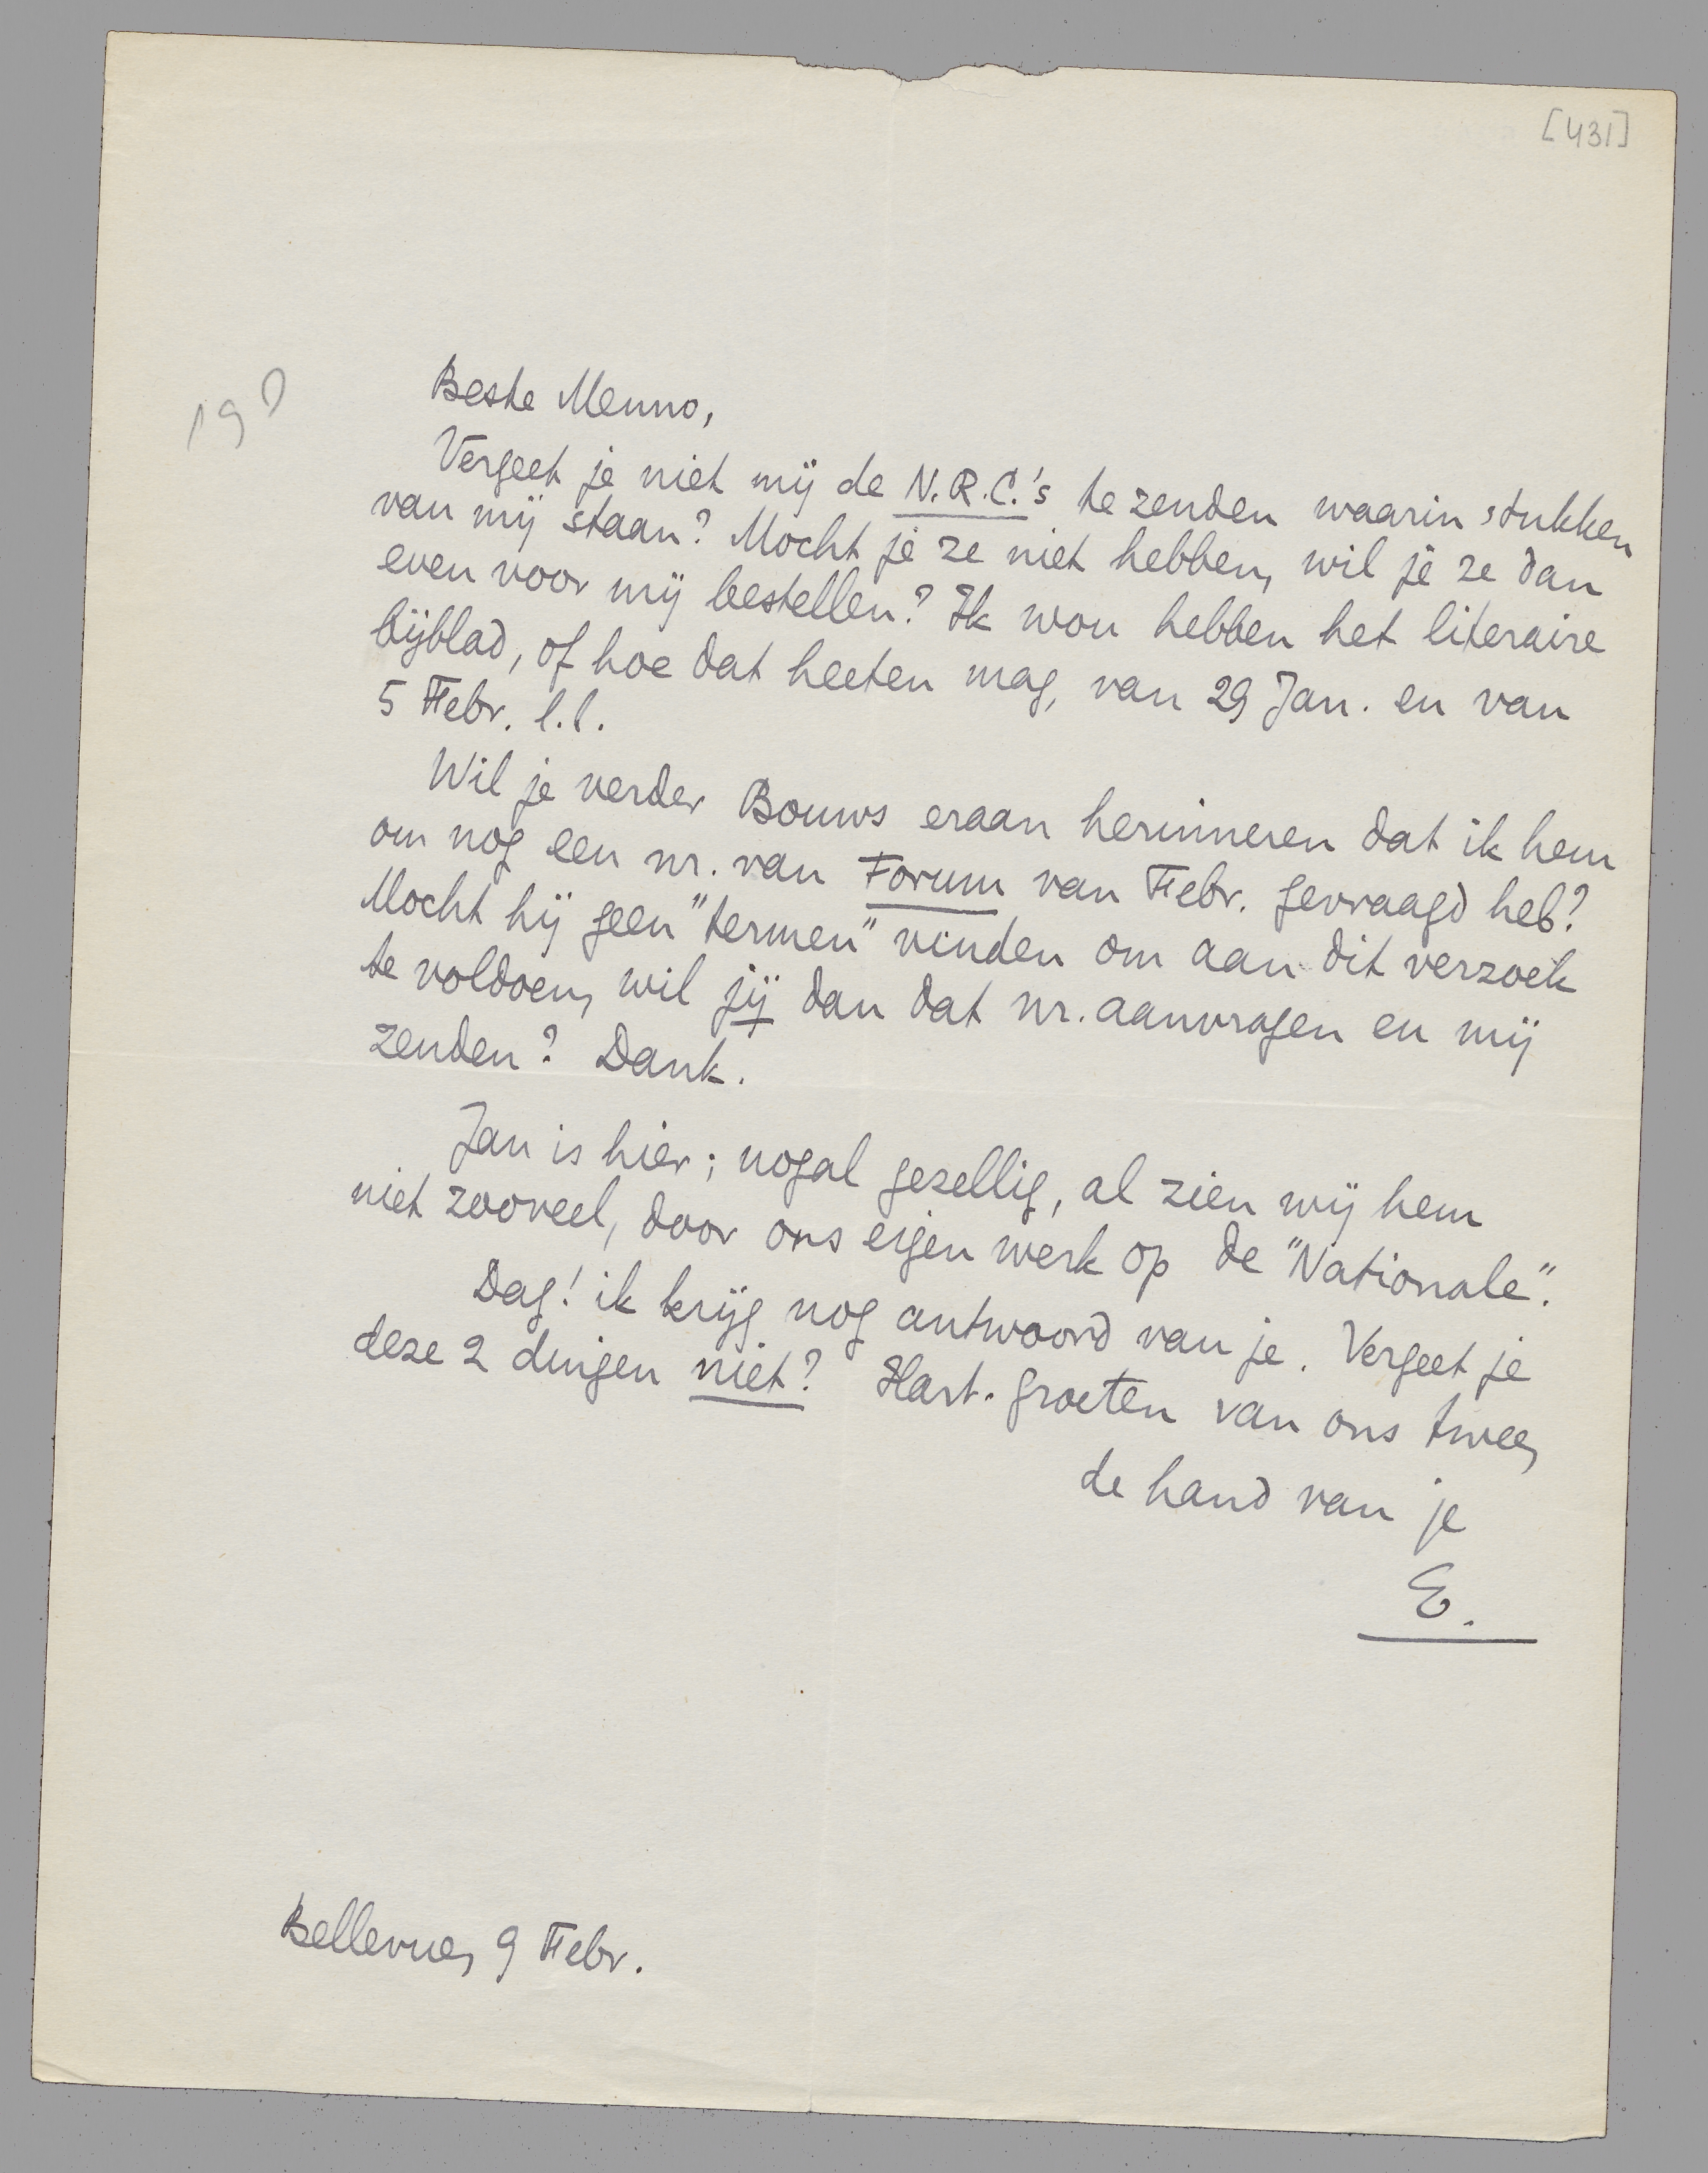 [431]
190
Beste Menno,
Vergeet je niet mij de N.R.C.'s te zenden waarin stukken
van mij staan? Mocht je ze niet hebben, wil je ze dan
even voor mij bestellen? Ik wou hebben het literaire
bijblad, of hoe dat heeten mag, van 29 Jan. en van
5 Febr. l.l.
Wil je verder Bouws eraan herinneren dat ik hem
om nog een nr. van Forum van Febr. gevraagd heb?
Mocht hij geen "termen" vinden om aan dit verzoek
te voldoen, wil jij dan dat nr. aanvragen en mij
zenden? Dank.
Jan is hier; nogal gezellig, al zien wij hem
niet zooveel, door ons eigen werk op de "Nationale".
Dag! ik krijg nog antwoord van je. Vergeet je
deze 2 dingen niet? Hart. groeten van ons twee,
de hand van je
E.
Bellevue, 9 Febr.